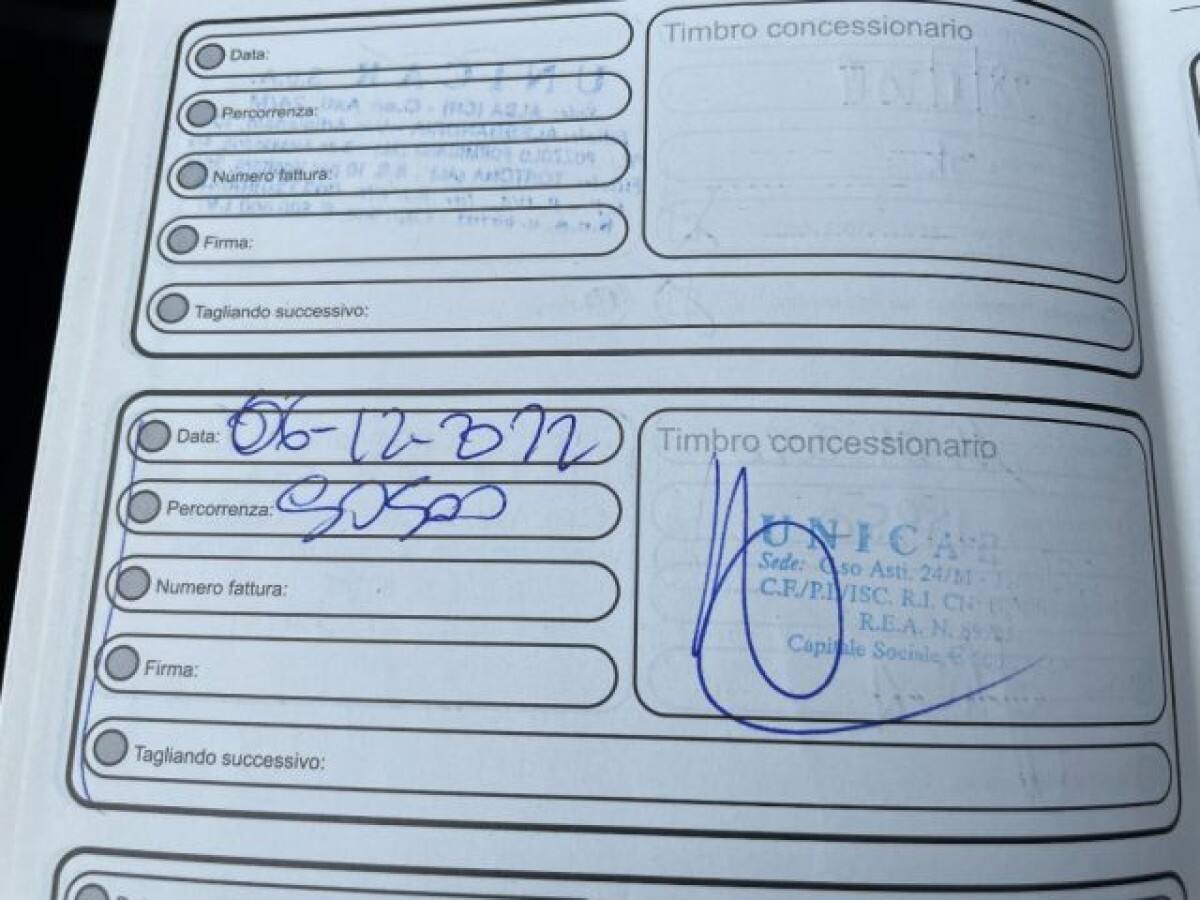 Data:
Timbro concessionario
Percorrenza:
Numero fattura:
Firma:
Tagliando successivo:
Data: 06-12-2022
Timbro concessionario
Percorrenza: 90500
UNICAR
Sede: C.so Asti, 24/M -
Numero fattura:
C.F./P.I./ISC. R.I. CN
R.E.A. N.
Firma:
Capitale Sociale €
Tagliando successivo: